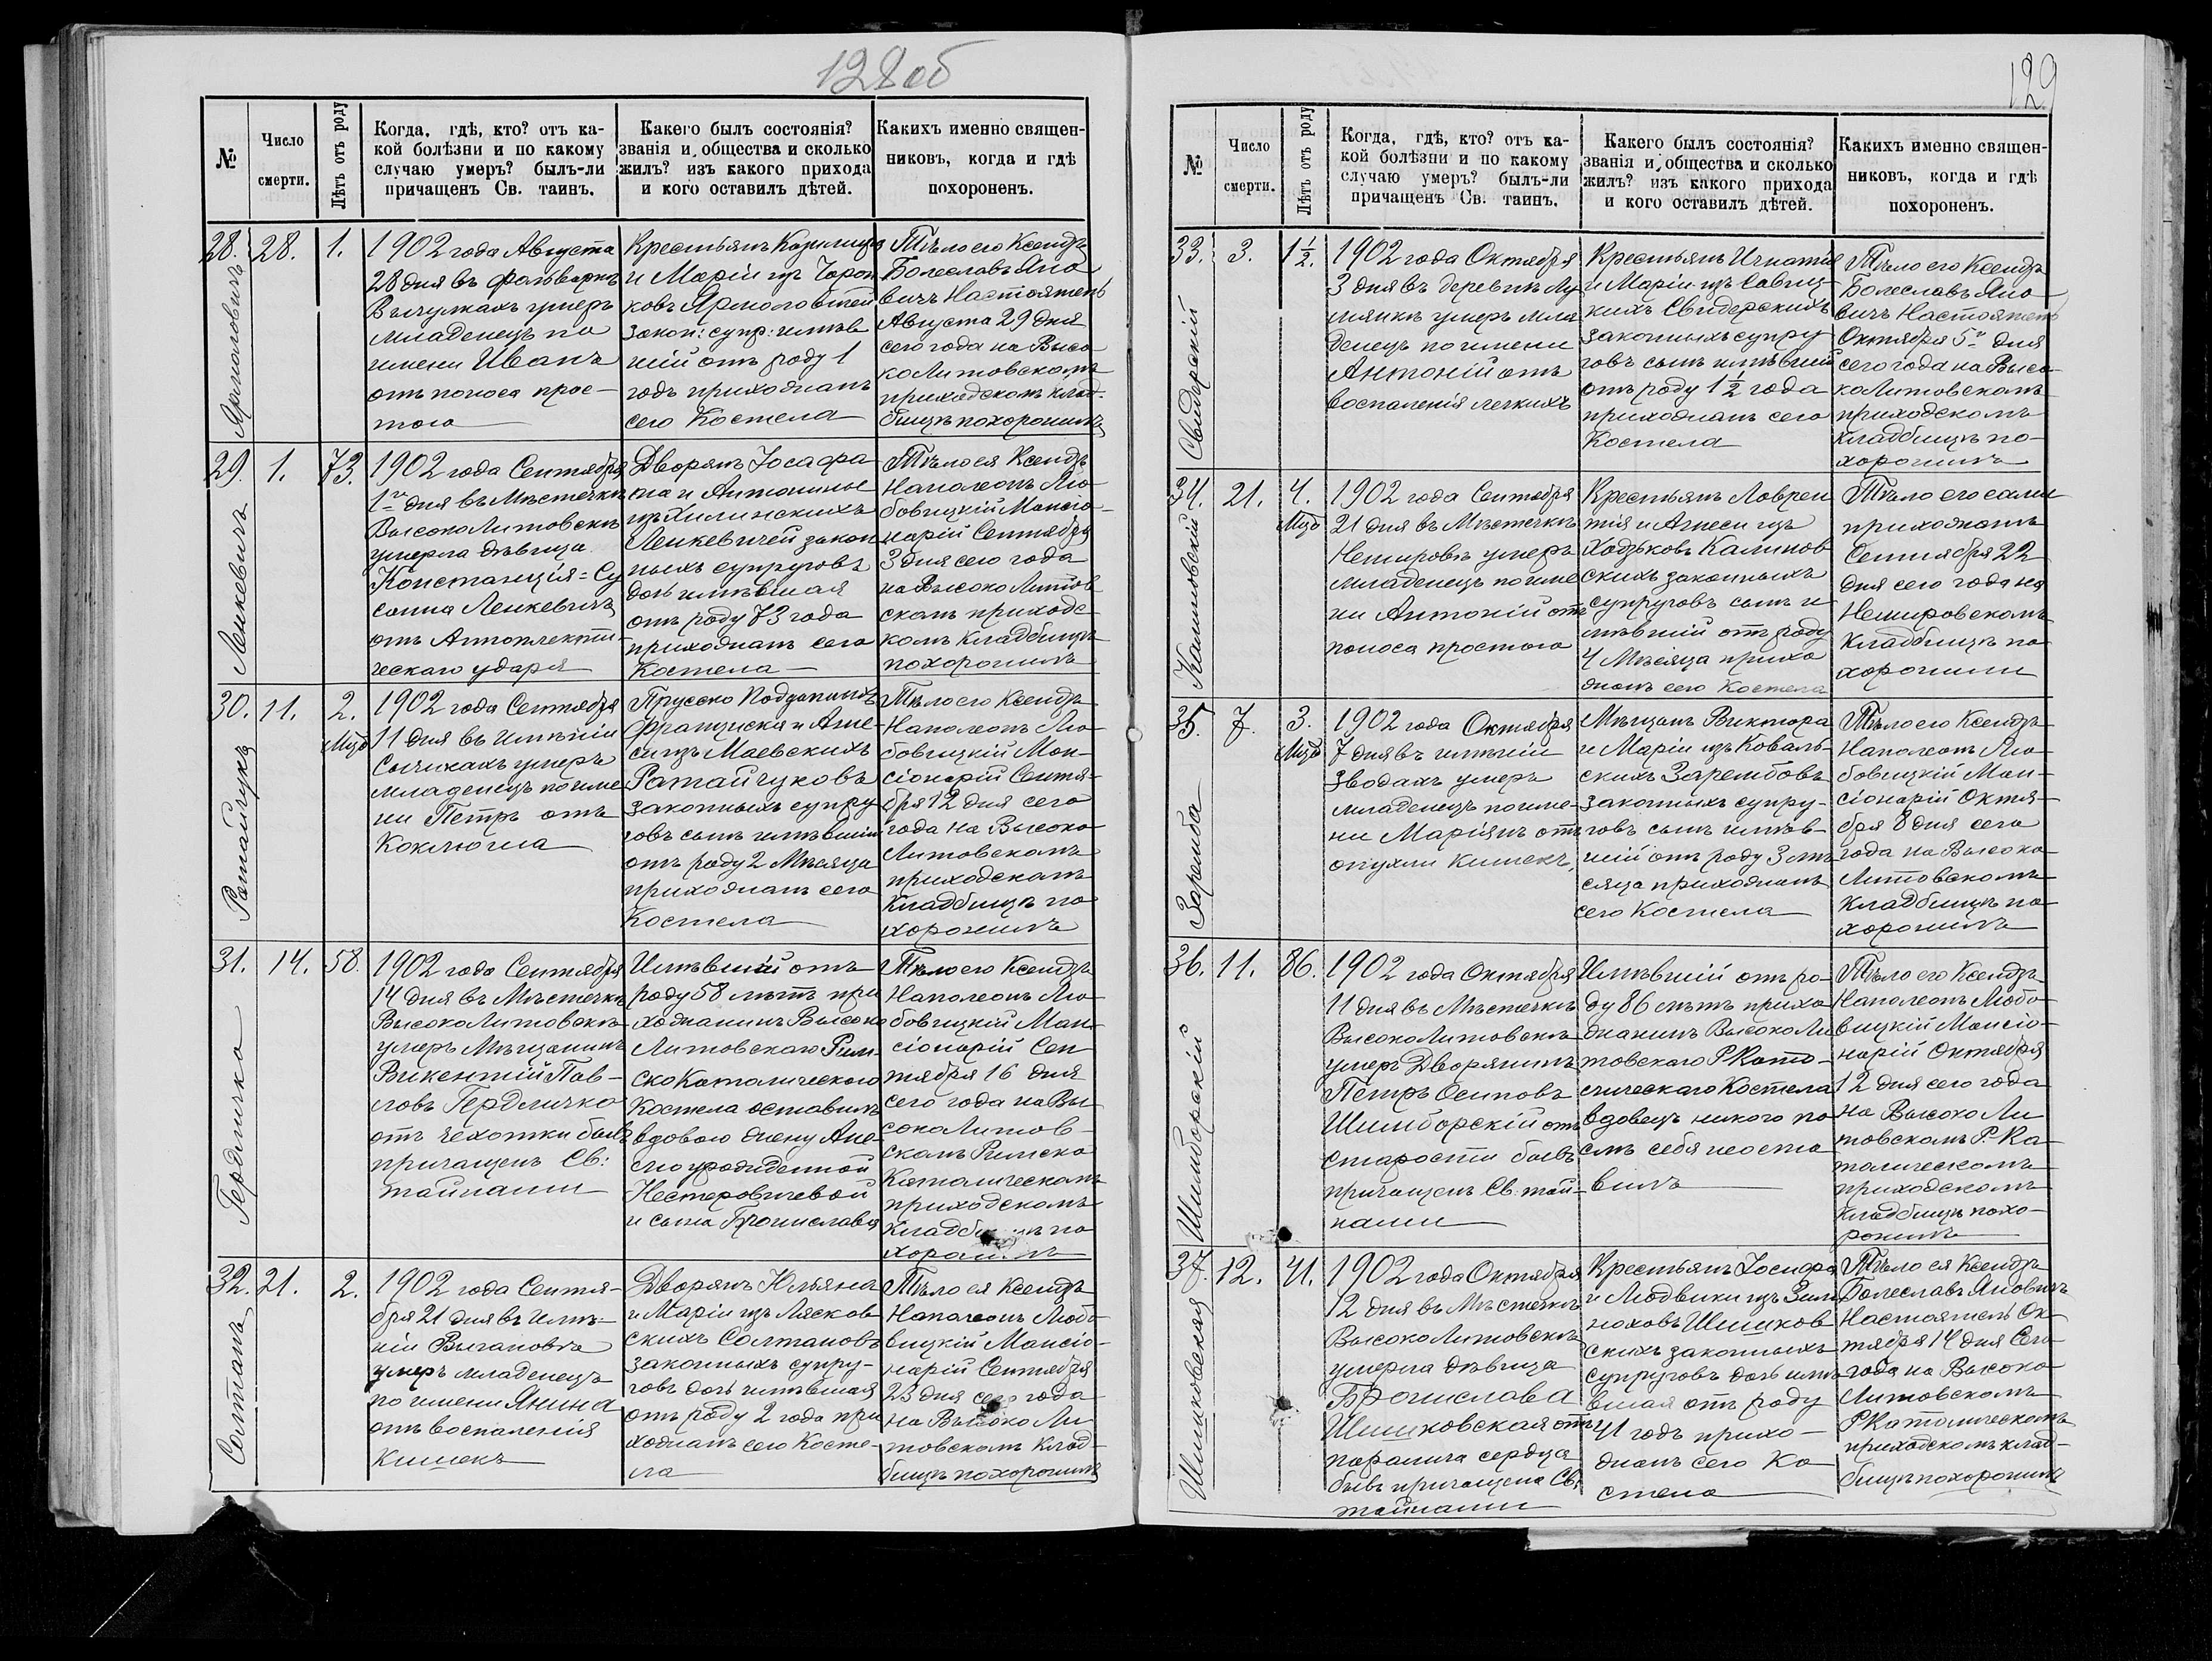 128об
№
Число
смерти.
Лѣтъ отъ роду
Когда, гдѣ, кто? отъ ка-
кой болѣзни и по какому
случаю умеръ? былъ-ли
причащенъ Св. таинъ.
Какего былъ состоянія?
званія и общества и сколько
жилъ? изъ какого прихода
и кого оставилъ дѣтей.
Какихъ именно священ-
никовъ, когда и гдѣ
похороненъ.
28.
Ярмоловичъ
28.
1.
1902 года Августа
28 дня въ фольваркѣ
умеръ
младенецъ по
имени Иванъ
отъ поноса прос-
того
Крестьянъ
и Маріи изъ
ковъ Ярмоловичей
закон: супр: имѣв
шій отъ роду 1
годъ прихожанъ
сего Костела
Тѣло его Ксендзъ
Болеславъ Яно
вичъ Настоятель
Августа 29 дня
сего года на Высо
коЛитовскомъ
приходскомъ клад-
бищѣ похоронилъ
29.
Ленкевичъ
1.
73.
1902 года Сентября
1го дня въ Мѣстечкѣ
ВысокоЛитовскѣ
умерла дѣвица
Констанція=Су
санна Ленкевичъ
отъ Аппоплекти-
ческаго удара
Дворянъ Іосафа
та и Антонины
изъ Хилинскихъ
Ленкевичей закон
ныхъ супруговъ
дочь имѣвшая
отъ роду 73 года
прихожанъ сего
Костела
Тѣло ея Ксендзъ
Наполеонъ Лю
бовицкій Мансіо-
нарій Сентября
3 дня сего года
на Высоко Литов
скомъ приходс
комъ кладбищѣ
похоронилъ
30.
Ратайчукъ
11.
2.
Мцѣ
1902 года Сентября
11 дня въ имѣніи
Сычикахъ умеръ
младенецъ по име
ни Петръ отъ
Коклюша
Прусско Подданныхъ
Францишка и Агне-
сы изъ Маевскихъ
Ратайчуковъ
законныхъ супру
говъ сынъ имѣвшій
отъ роду 2 Мѣсяца
прихожанъ сего
Костела
Тѣло его Ксендзъ
Наполеонъ Лю-
бовицкій Ман-
сіонарій Сентя-
бря 12 дня сего
года на Высоко
Литовскомъ
приходскомъ
Кладбищѣ по
хоронилъ
31.
Гердличко
14.
58.
1902 года Сентября
14 дня въ Мѣстечкѣ
ВысокоЛитовскѣ
умеръ Мѣщанинъ
Викентій Пав-
ловъ Гердличко
отъ чехотки бывъ
причащенъ Св:
тайнами
Имѣвшій отъ
роду 58 лѣтъ при
хожанинъ Высоко
Литовскаго Рим-
скоКатолическаго
Костела оставилъ
вдовою жену Агне-
сію урожденной
Нестеровичевой
и сына Бронислава
Тѣло его Ксендзъ
Наполеонъ Лю-
бовицкій Ман-
сіонарій Сен
тября 16 дня
сего года на Вы
сокоЛитов-
скомъ Римско
Католическомъ
приходскомъ
Кладбищѣ по
хоронилъ
32.
Солтанъ
21.
2.
1902 года Сентя-
бря 21 дня въ Имѣ-
ніи Вычановѣ
умеръ младенецъ
по имени Янина
отъ воспаленія
Кишекъ
Дворянъ Юльяна
и Маріи изъ Лясков
скихъ Солтановъ
законныхъ супру-
говъ дочь имѣвшая
отъ роду 2 года при
хожанъ сего Косте-
ла
Тѣло ея Ксендзъ
Наполеонъ Любо
вицкій Мансіо-
нарій Сентября
23 дня сего года
на Высоко Ли-
товскомъ Клад-
бищѣ похоронилъ
129
№
Число
смерти.
Лѣтъ отъ роду
Когда, гдѣ, кто? отъ ка-
кой болѣзни и по какому
случаю умеръ? былъ-ли
причащенъ Св. таинъ.
Какего былъ состоянія?
званія и общества и сколько
жилъ? изъ какого прихода
и кого оставилъ дѣтей.
Какихъ именно священ-
никовъ, когда и гдѣ
похороненъ.
33.
Свидерскій
3.
1½.
1902 года Октября
3 дня въ деревнѣ
умеръ мла
денецъ по имени
Антоній отъ
воспаленія легкихъ
Крестьянъ Игнатія
и Маріи изъ Савиц-
кихъ Свидерскихъ
законныхъ супру
говъ сынъ имѣвшій
отъ роду 1½ года
прихожанъ сего
Костела
Тѣло его Ксендзъ
Болеславъ Яно-
вичъ Настоятель
Октября 5го дня
сего года на Высо-
коЛитовскомъ
приходскомъ
кладбищѣ по-
хоронилъ
34.
Калиновскій
21.
4.
Мцѣ
1902 года Сентября
21 дня въ Мѣстечкѣ
Немировѣ умеръ
младенецъ по име
ни Антоній отъ
поноса простого
Крестьянъ Лаврен
тія и Агнесы изъ
Ходзьковъ Калинов
скихъ законныхъ
супруговъ сынъ и-
мѣвшій отъ роду
4 Мѣсяца прихо
жанъ сего Костела
Тѣло его сами
прихожане
Сентября 22
дня сего года на
Немировскомъ
Кладбищѣ по
хоронили
35.
Заремба
7.
3.
Мцѣ
1902 года Октября
7 дня въ имѣніи
Зводахъ умеръ
младенецъ по име-
ни Маріянъ отъ
опухли кишекъ
Мѣщанъ Виктора
и Маріи изъ Коваль-
скихъ Зарембовъ
законныхъ супру-
говъ сынъ имѣв-
шій отъ роду 3 мѣ
сяца прихожанъ
сего Костела
Тѣло его Ксендзъ
Наполеонъ Лю-
бовицкій Ман-
сіонарій Октя-
бря 8 дня сего
года на Высоко
Литовскомъ
кладбищѣ по-
хоронилъ
36.
Шимборскій
11.
86.
1902 года Октября
11 дня въ Мѣстечкѣ
ВысокоЛитовскѣ
умеръ Дворянинъ
Петръ Осиповъ
Шимборскій отъ
старости бывъ
причащенъ Св. тай-
нами
Имѣвшій отъ ро-
ду 86 лѣтъ прихо
жанинъ ВысокоЛи
товскаго Р Като-
лическаго Костела
вдовецъ никого по
слѣ себя неоста
вилъ
Тѣло его Ксендзъ
Наполеонъ Любо-
вицкій Мансіо-
нарій Октября
12 дня сего года
на Высоко Ли
товскомъ Р. Ка-
толическомъ
приходскомъ
Кладбищѣ похо-
ронилъ
37.
Шишковская
12.
41.
1902 года Октября
12 дня въ Мѣстечкѣ
ВысокоЛитовскѣ
умерла дѣвица
Бронислава
Шишковская отъ
паралича сердца
бывъ причащена Св.
тайнами
Крестьянъ Іосифа
и Людвики изъ Зим
ноховъ Шишков
скихъ законныхъ
супруговъ дочь имѣ
вшая отъ роду
41 годъ прихо-
жанъ сего Ко
стела
Тѣло ея Ксендзъ
Болеславъ Яновичъ
Настоятель Ок-
тября 14 дня Сего
года на Высоко
Литовскомъ
Р Католическомъ
приходскомъ клад-
бищѣ похоронилъ